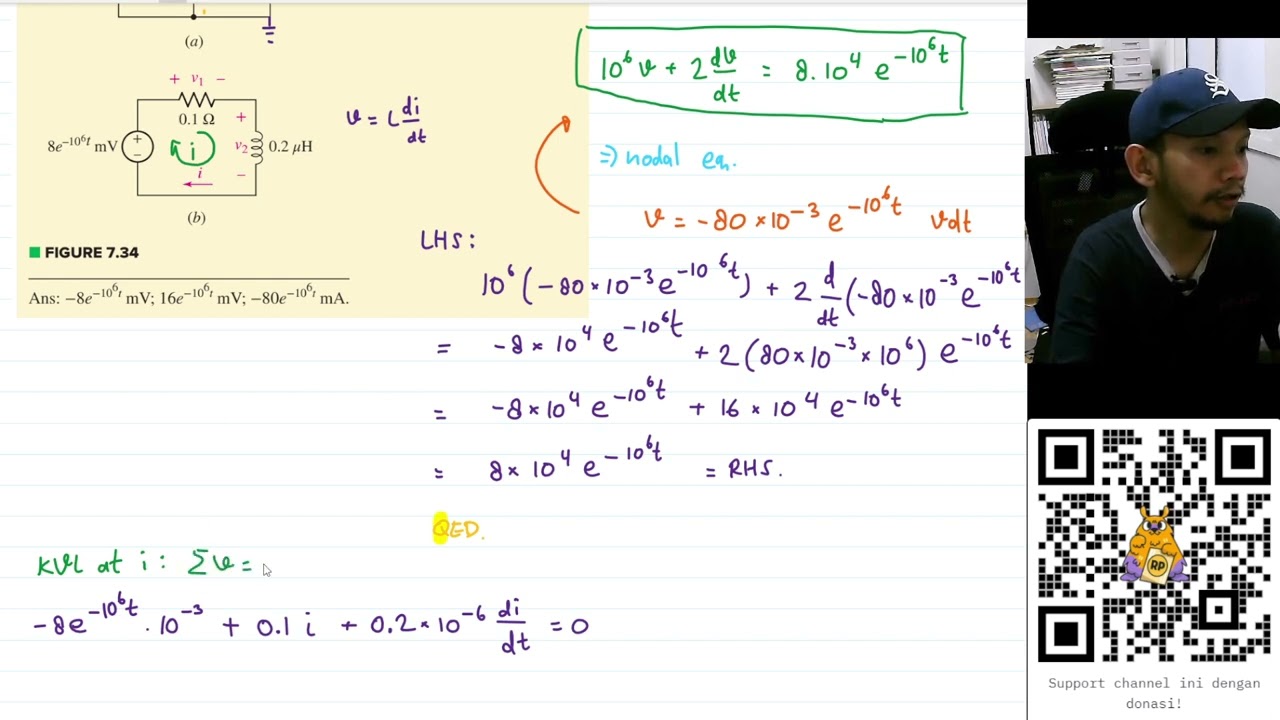 (a)
+ v₁ −
0.1 Ω
8e^−10⁶t mV
+
−
i
+
v₂
−
0.2 μH
i
(b)
FIGURE 7.34
Ans: −8e^−10⁶t mV; 16e^−10⁶t mV; −80e^−10⁶t mA.
v = L di/dt
10⁶v + 2 dv/dt = 8.10⁴ e^−10⁶t
⇒ nodal eq.
v = −80 × 10⁻³ e^−10⁶t volt
LHS:
10⁶(−80 × 10⁻³ e^−10⁶t) + 2 d/dt (−80 × 10⁻³ e^−10⁶t
= −8 × 10⁴ e^−10⁶t + 2(80 × 10⁻³ × 10⁶) e^−10⁶t
= −8 × 10⁴ e^−10⁶t + 16 × 10⁴ e^−10⁶t
= 8 × 10⁴ e^−10⁶t = RHS.
QED.
KVL at i: Σv =
−8e^−10⁶t . 10⁻³ + 0.1 i + 0.2 × 10⁻⁶ di/dt = 0
S
RP
Support channel ini dengan
donasi!